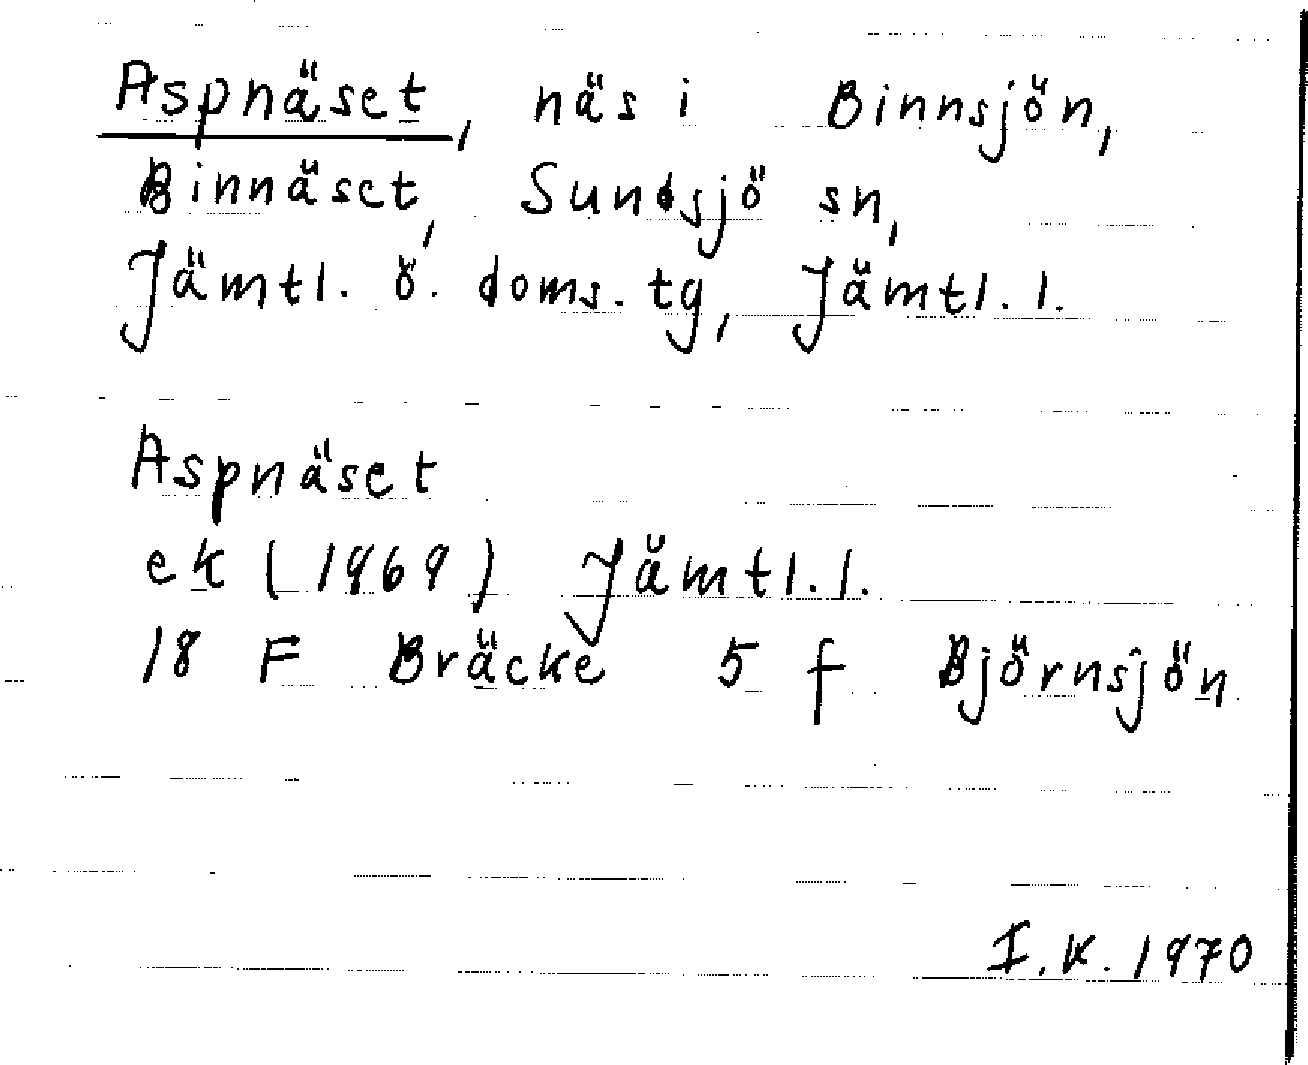 Aspnäset, näs i Binnsjön,
Binnäset, Sundsjö sn,
Jämtl. ö. doms. tg, Jämtl. l.
Aspnäset
ek (1969) Jämtl. l.
18 F Bräcke 5 f Björnsjön
I. K. 1970